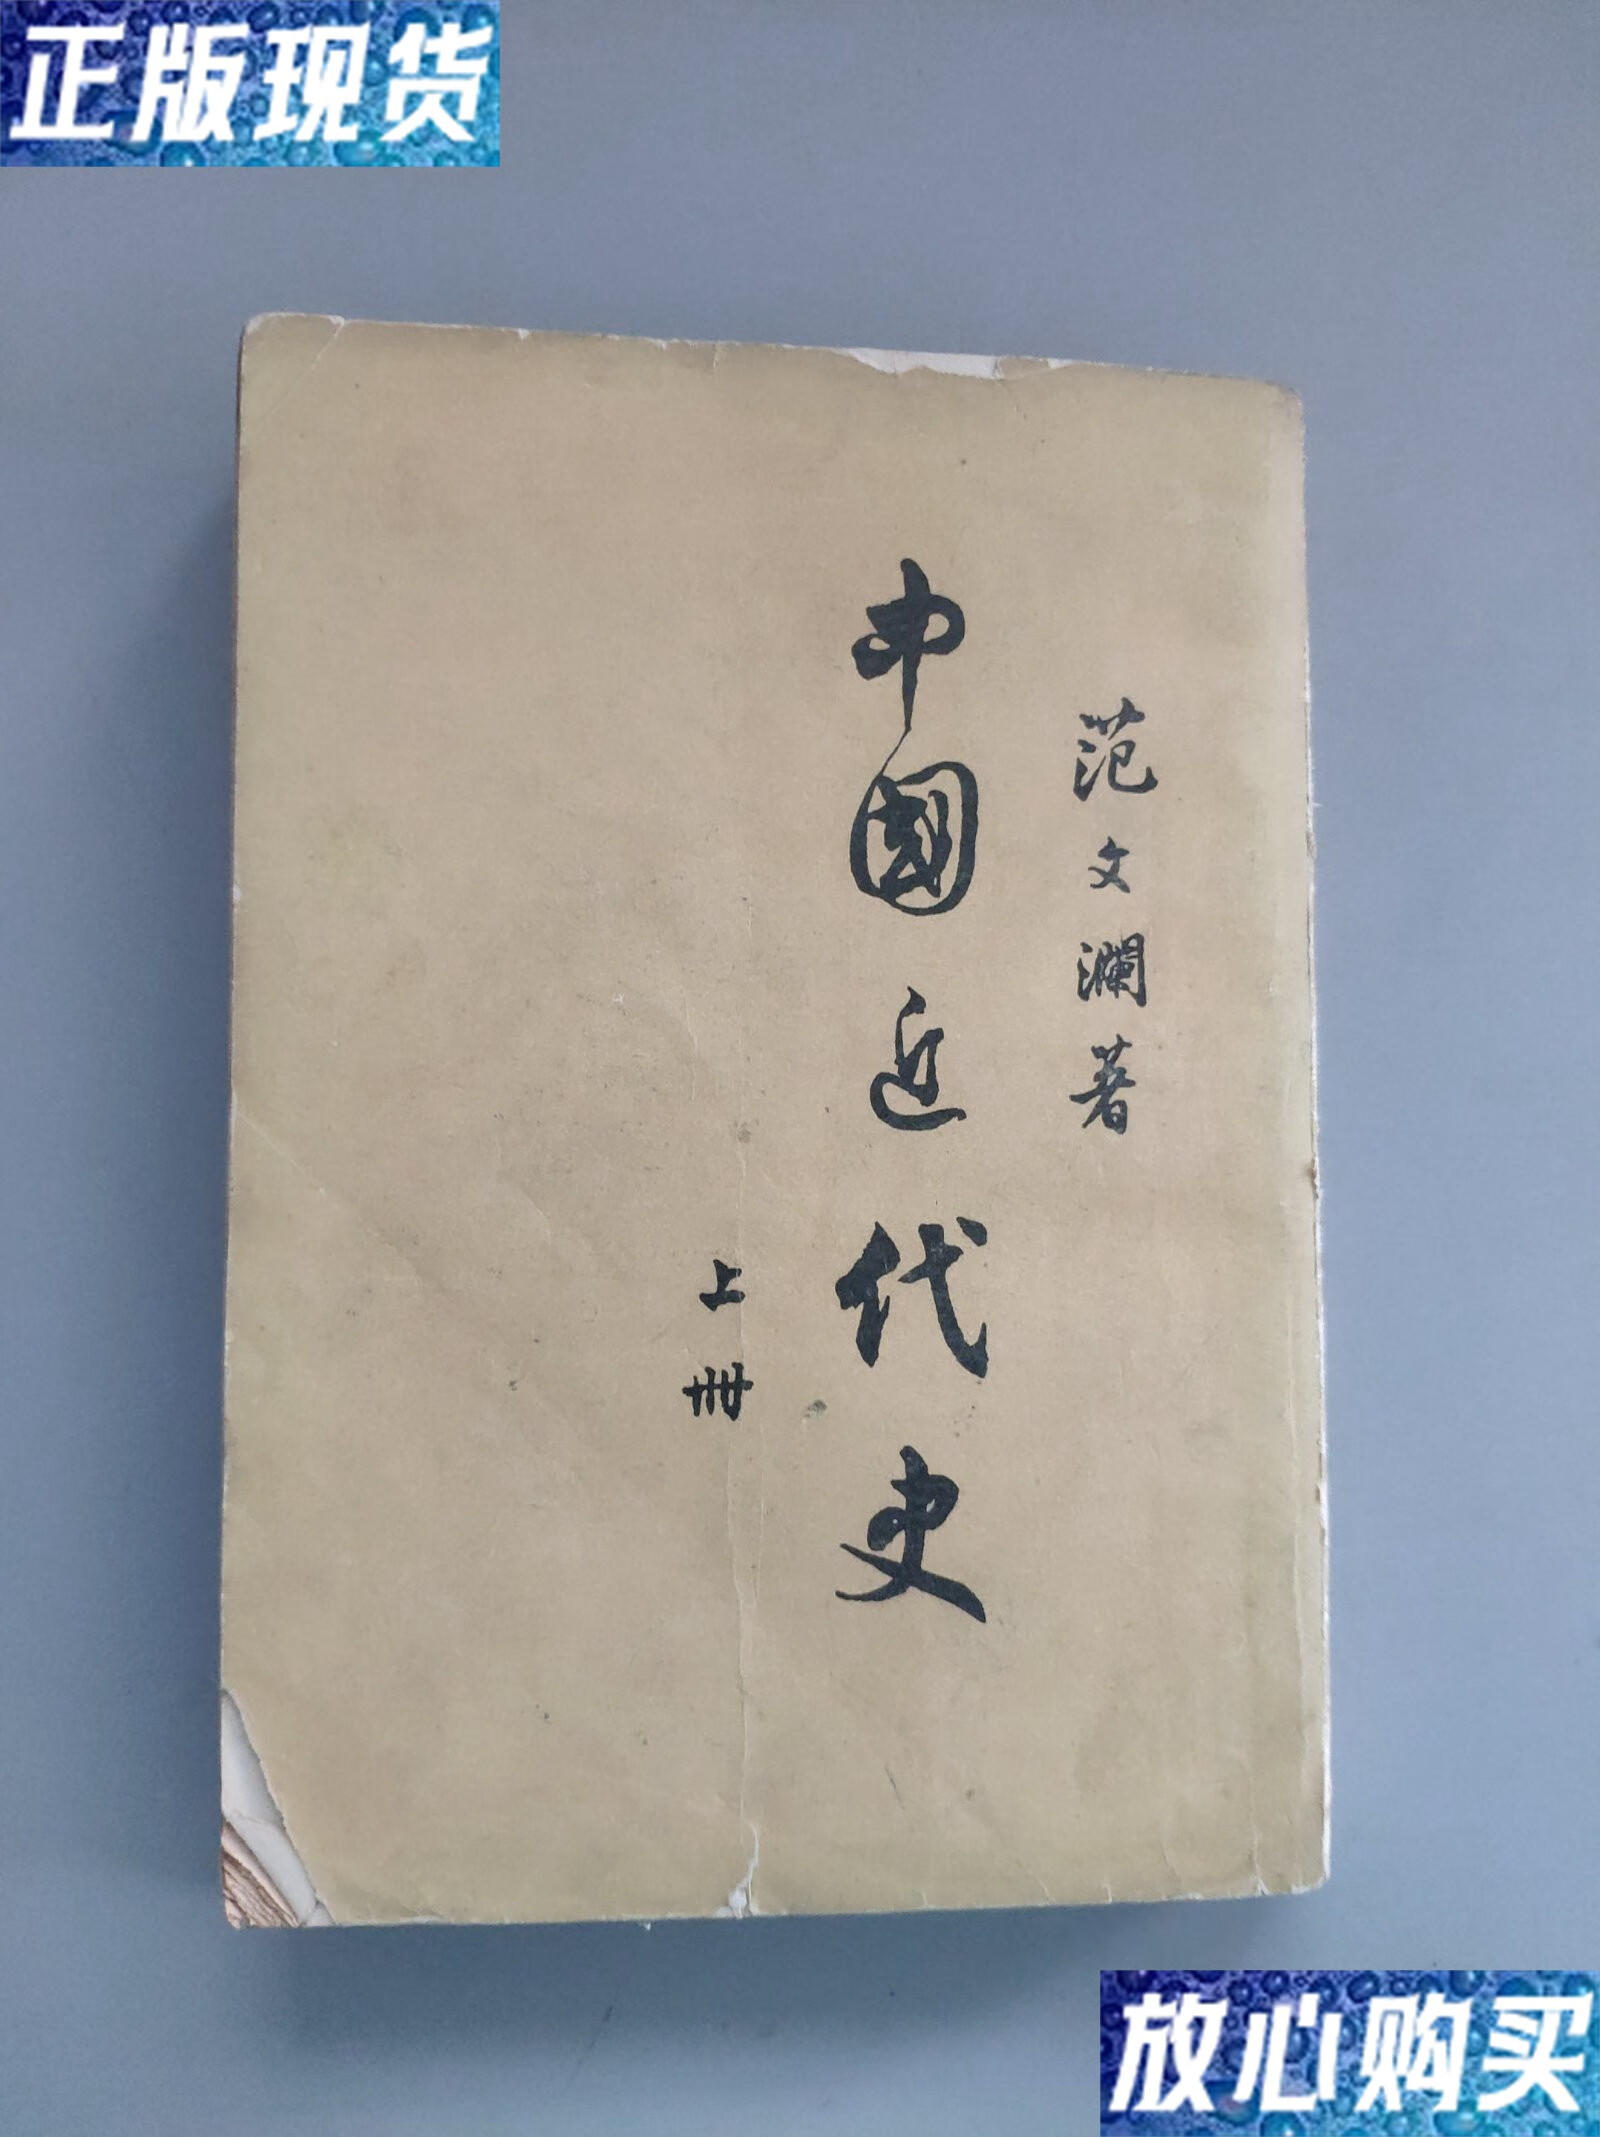 正版现货
范文瀾著
中國近代史
上冊
放心购买